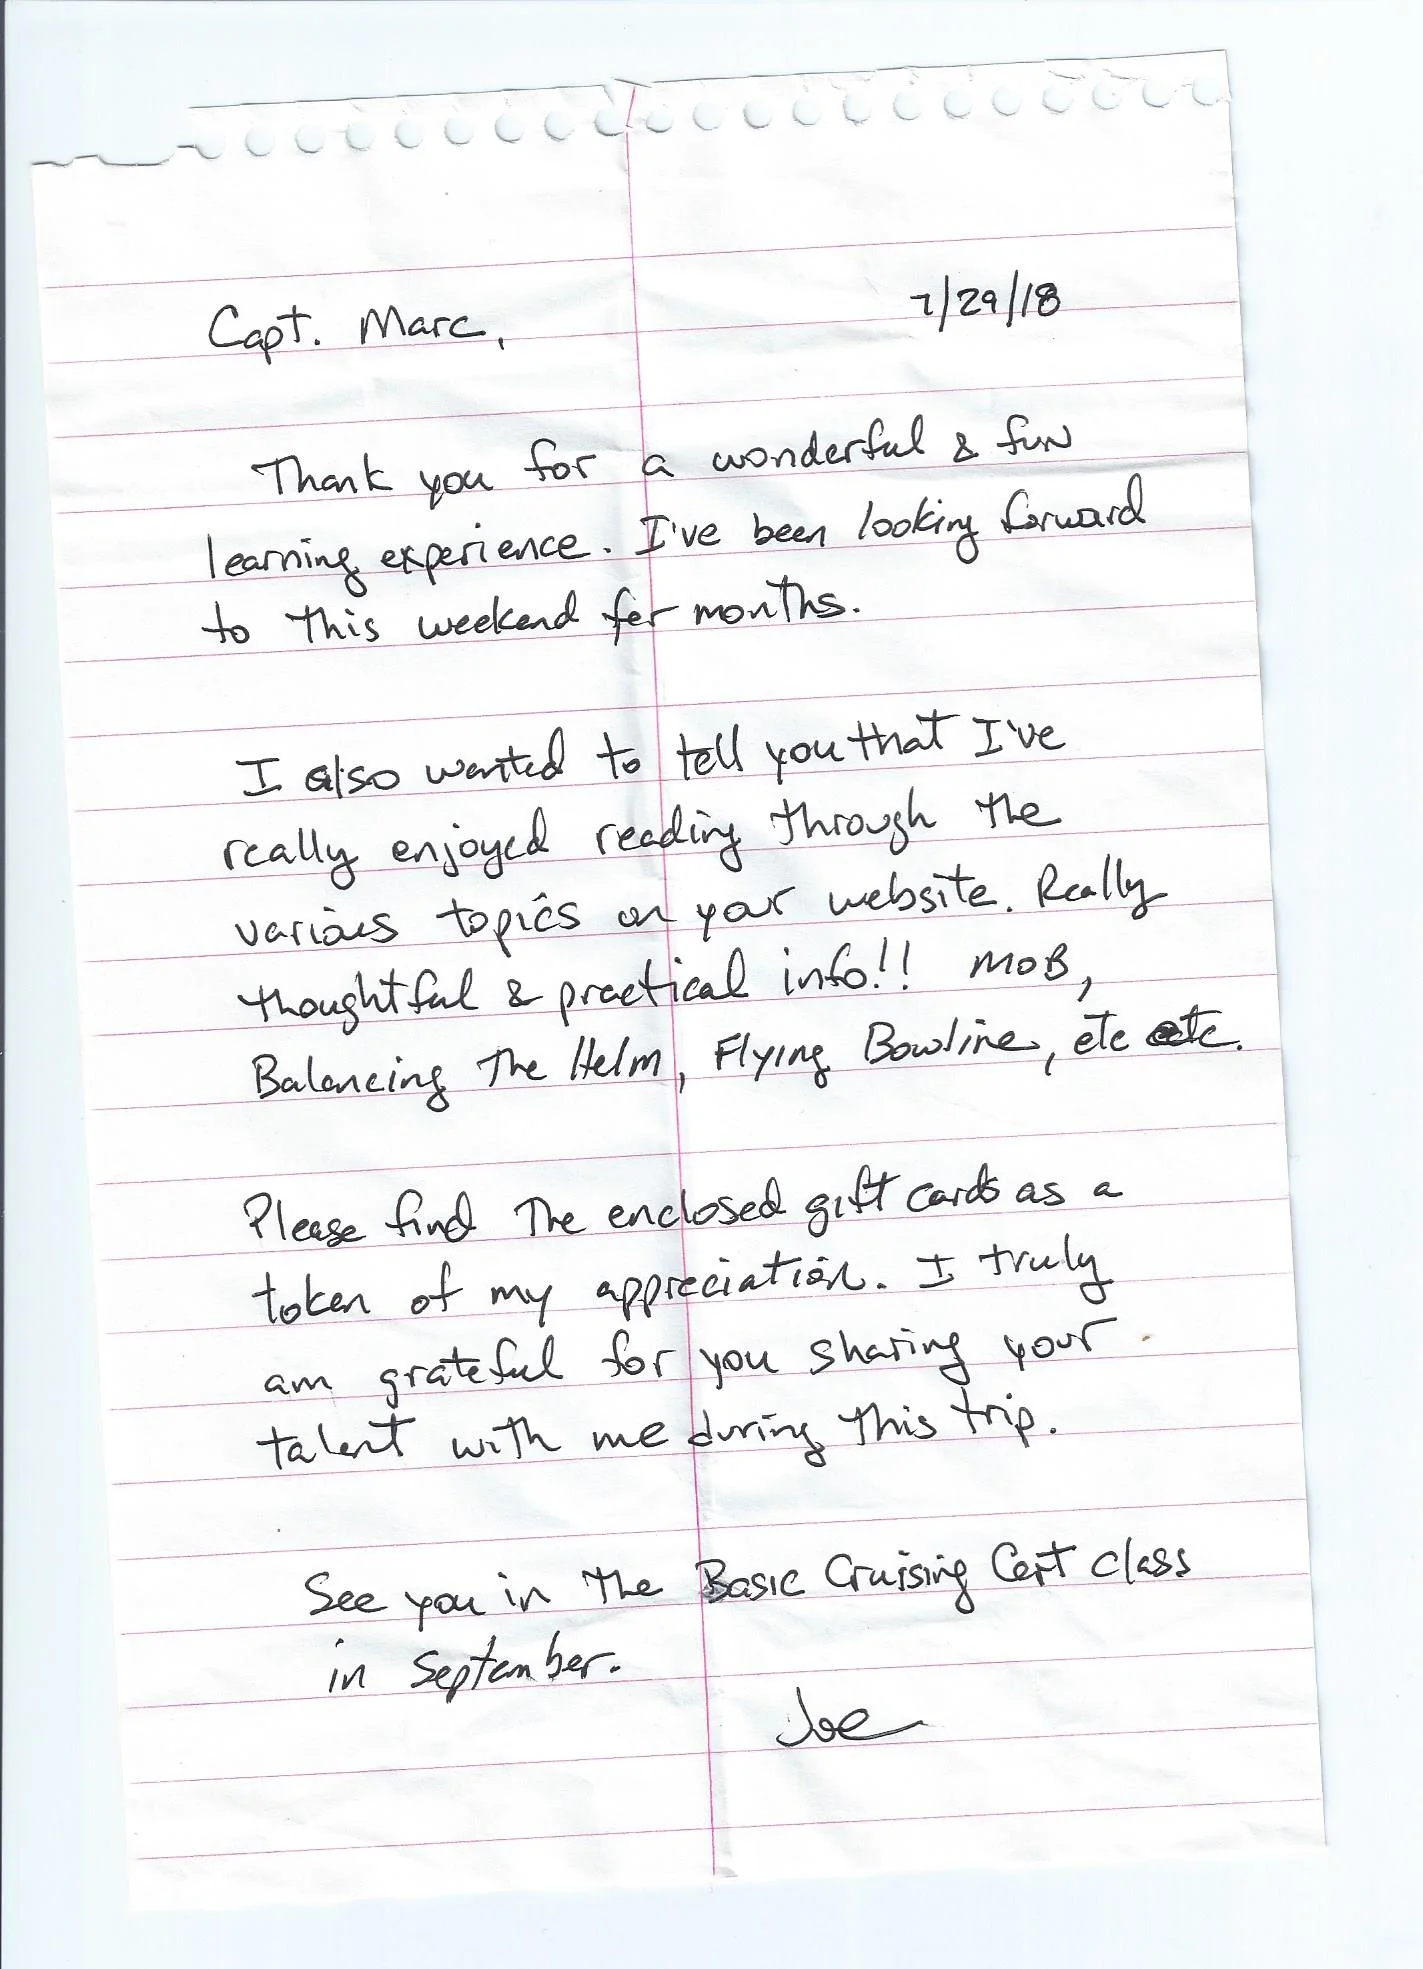 Capt. Marc,
7/29/18
Thank you for a wonderful & fun
learning experience. I've been looking forward
to this weekend for months.
I also wanted to tell you that I've
really enjoyed reading through the
various topics on your website. Really
thoughtful & practical info!! MOB,
Balancing The Helm, Flying Bowline, etc etc.
Please find The enclosed gift cards as a
token of my appreciation. I truly
am grateful for you sharing your
talent with me during this trip.
See you in The Basic Cruising Cert class
in September.
Joe